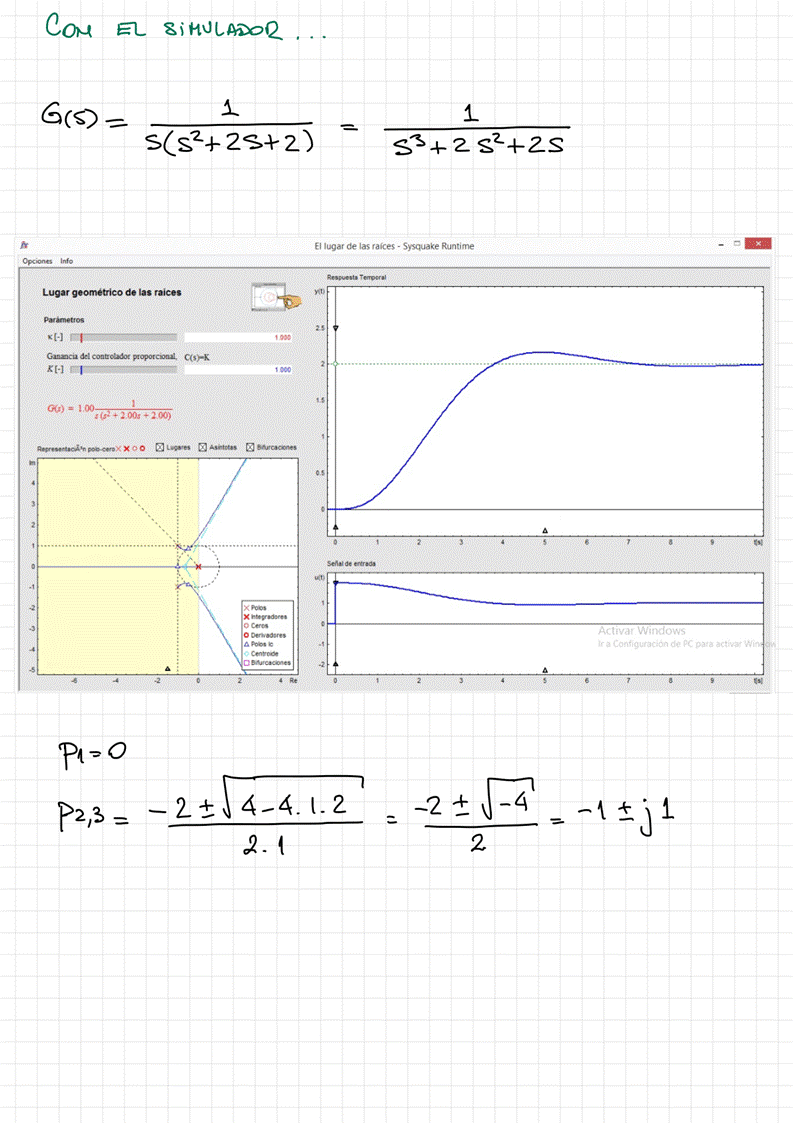 COM EL SIMULADOR...
G(s) = 1 / s(s²+2s+2) = 1 / s³+2s²+2s
El lugar de las raíces - Sysquake Runtime
Opciones Info
Lugar geométrico de las raíces
Parámetros
κ [-] 1.000
Ganancia del controlador proporcional, C(s)=K
K [-] 1.000
G(s) = 1.00 1 / s (s² + 2.00s + 2.00)
RepresentaciÃ³n polo-cero Lugares Asíntotas Bifurcaciones
Im
4
3
2
1
0
-1
-2
-3
-4
-5
-6 -4 -2 0 2 4 Re
Polos
Integradores
Ceros
Derivadores
Polos lc
Centroide
Bifurcaciones
Respuesta Temporal
y(t)
2.5
2
1.5
1
0.5
0
0 1 2 3 4 5 6 7 8 9 t[s]
Señal de entrada
u(t)
1
0
-1
-2
0 1 2 3 4 5 6 7 8 9 t[s]
Activar Windows
Ir a Configuración de PC para activar Window
P1=0
P2,3 = -2 ± √4-4.1.2 / 2.1 = -2 ± √-4 / 2 = -1 ± j1